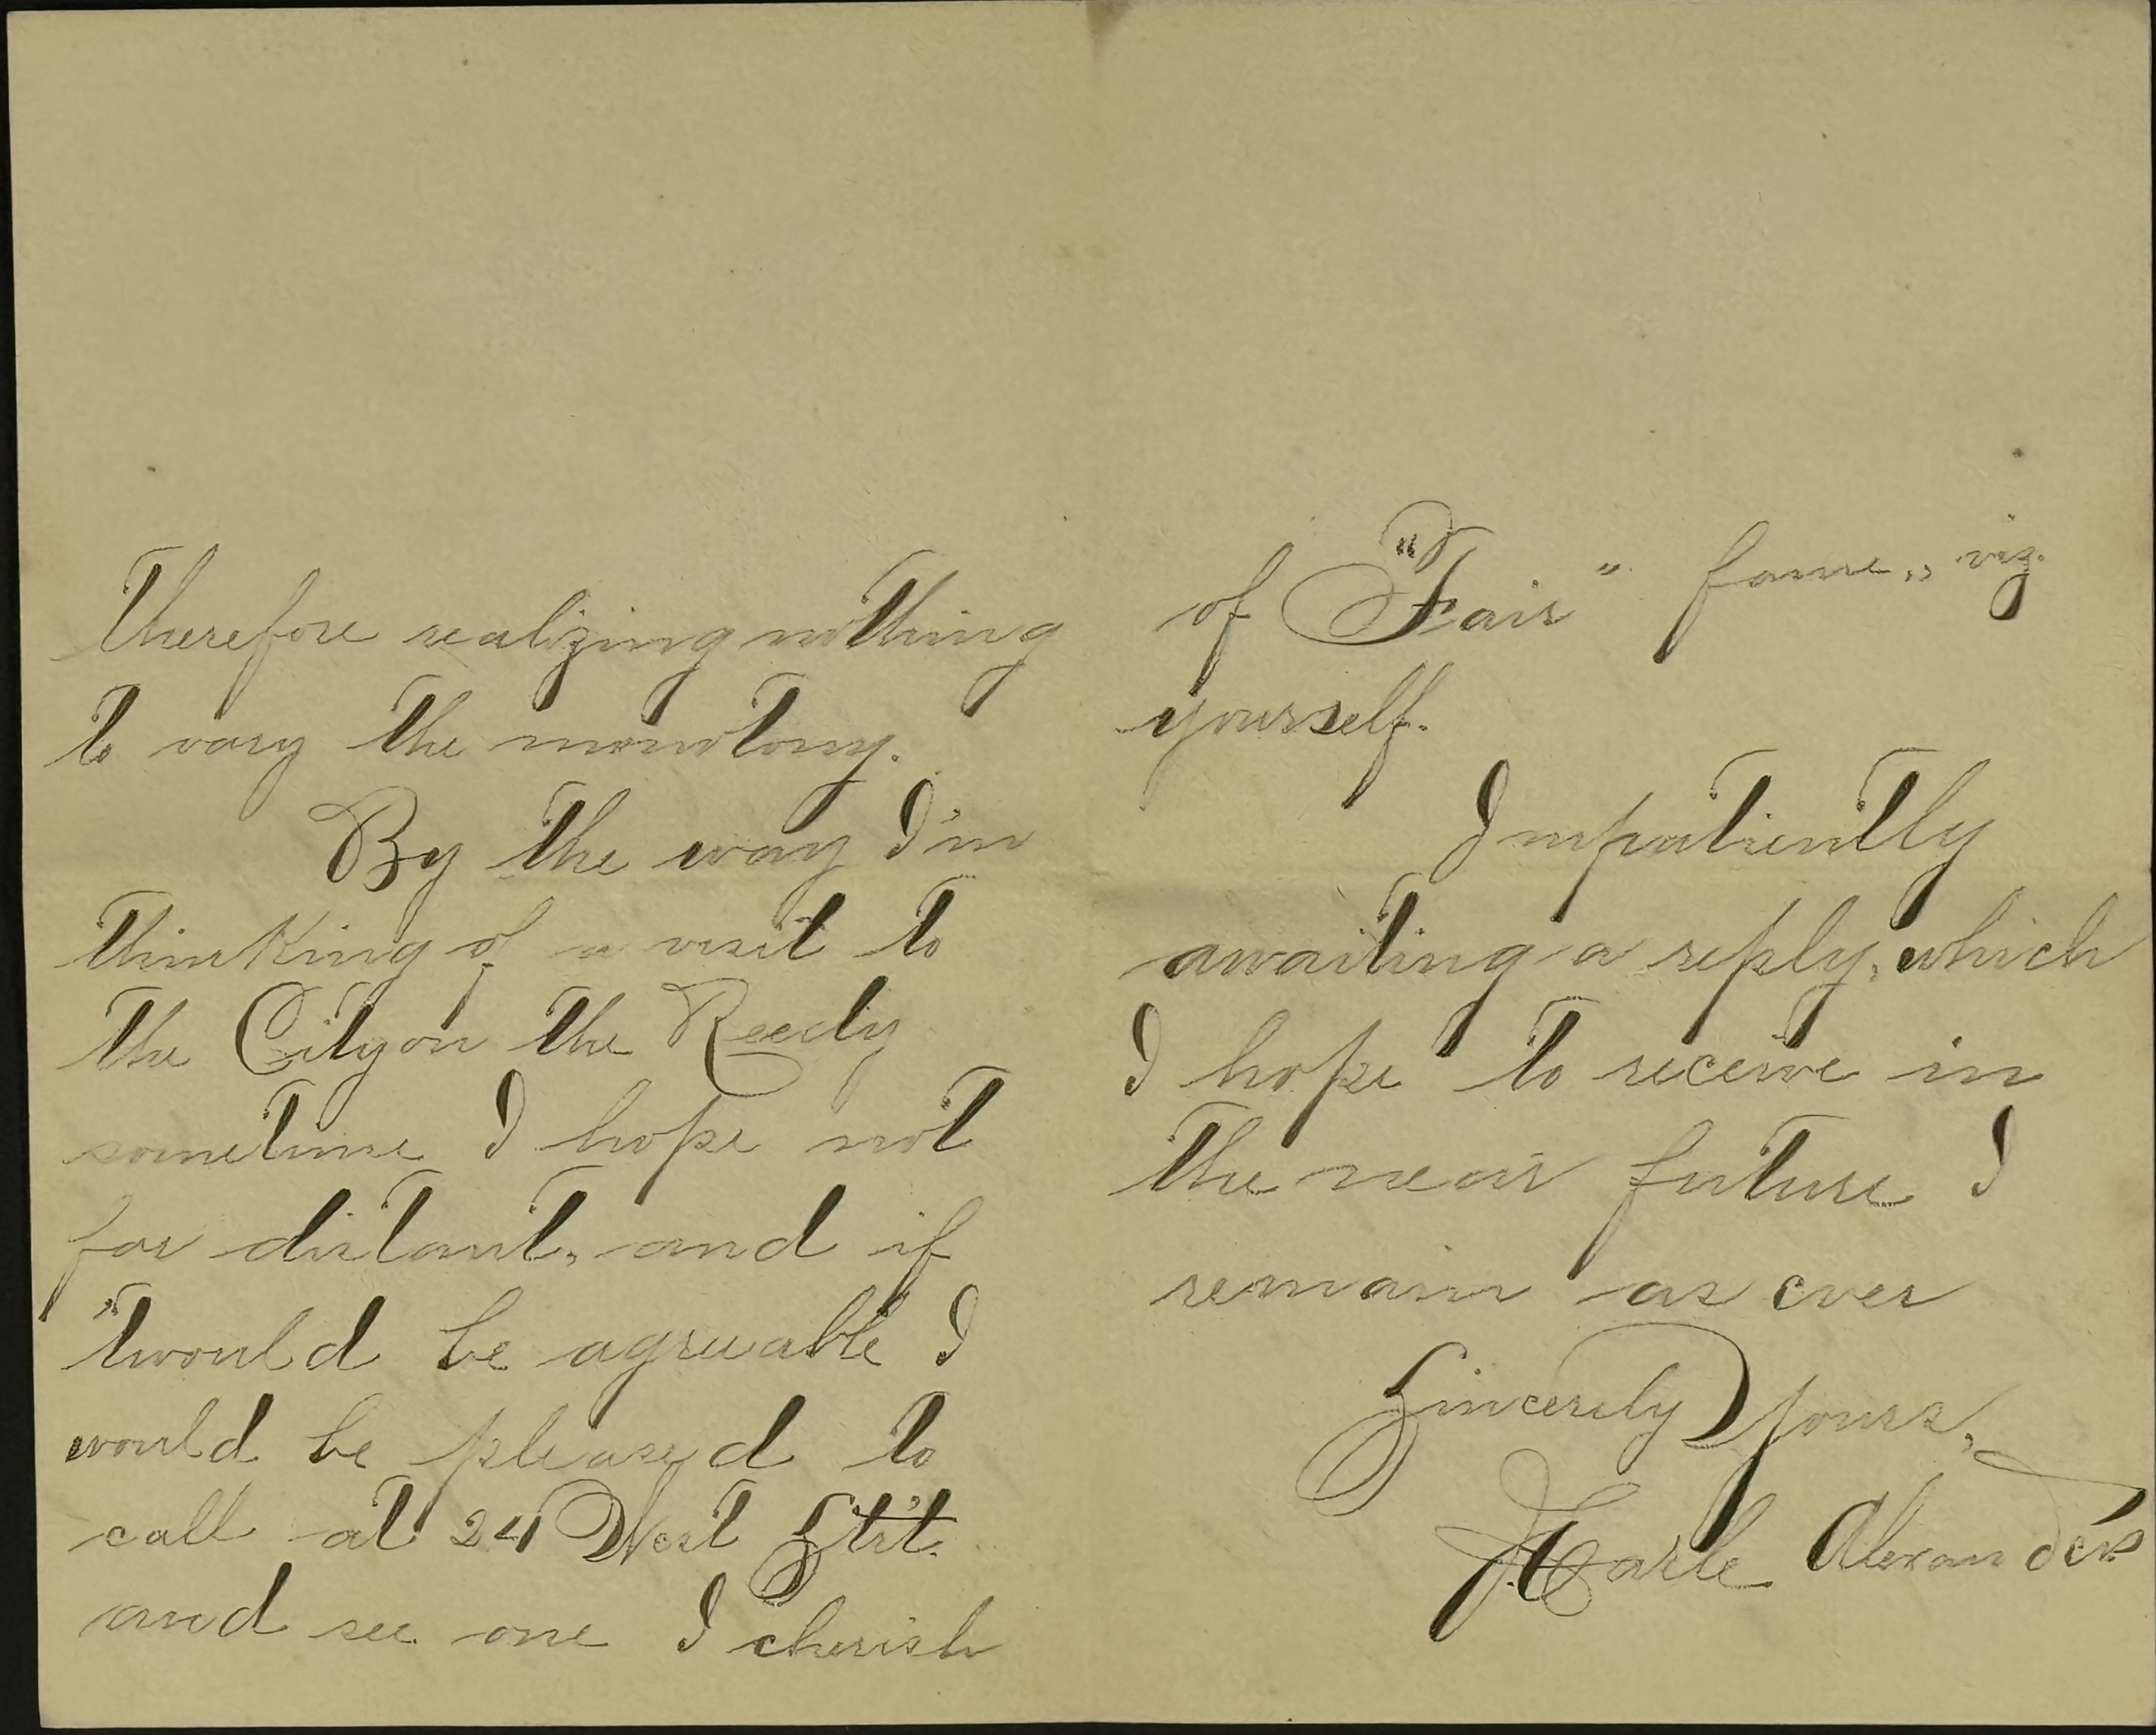 therefore realizing nothing
to vary the monotony.
By the way I'm
thinking of a visit to
the City on the Reedy
sometime I hope not
far distant, and if
"twould be agreeable I
would be pleased to
call at 24 West Strt.
and see one I cherish
of "Fair" fame,, viz.
yourself.
Impatiently
awaiting a reply, which
I hope to receive in
the near future I
remain as ever
Sincerely Yours,
Harle Alexander